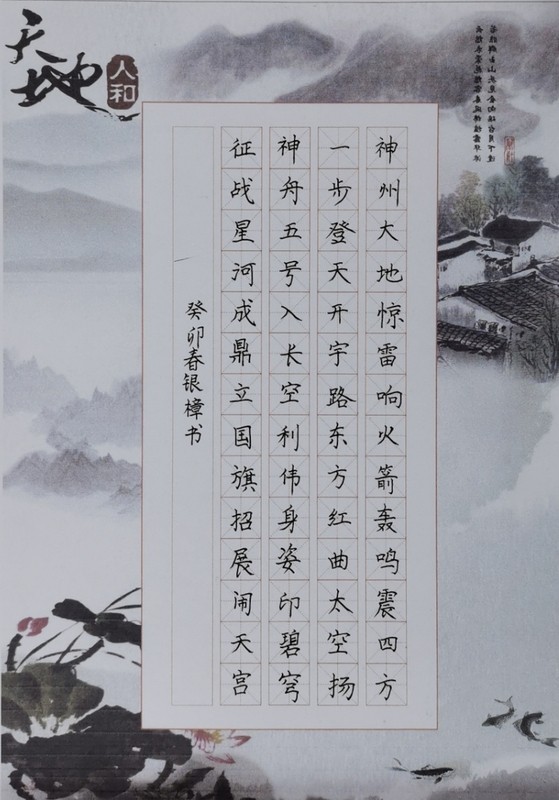 天地
人和
神州大地惊雷响火箭轰鸣震四方
一步登天开宇路东方红曲太空扬
神舟五号入长空利伟身姿印碧穹
征战星河成鼎立国旗招展闹天宫
癸卯春银樟书